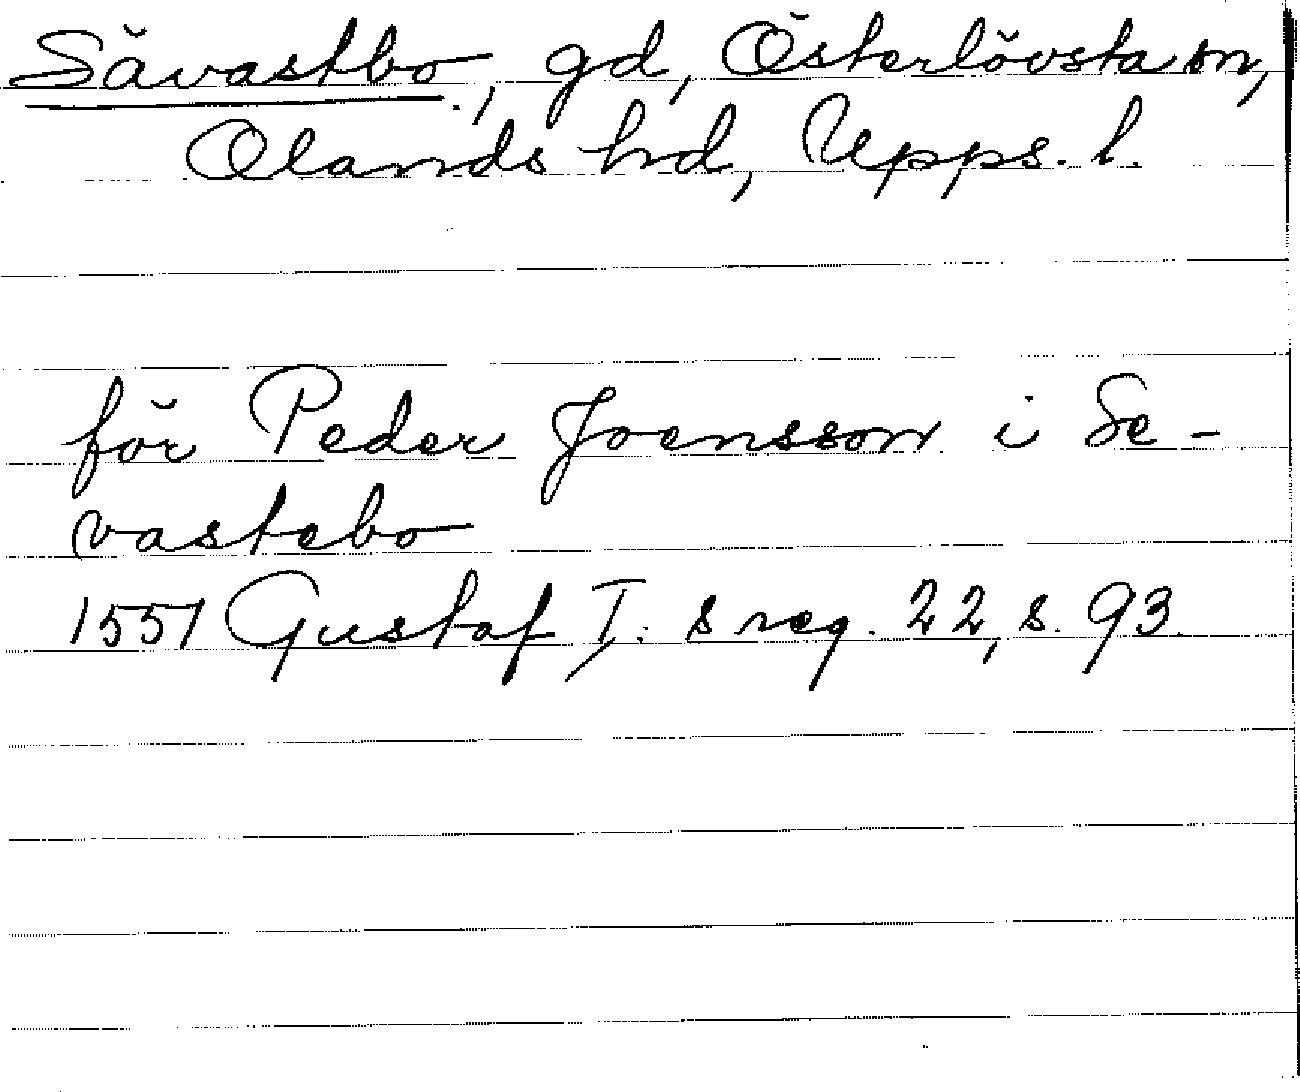 Sävastbo., gd, Österlövsta sn,
Olands hd, Upps. l.
för Peder Joensson i Se-
vastebo
1551 Gustaf I:s reg. 22, s. 93.